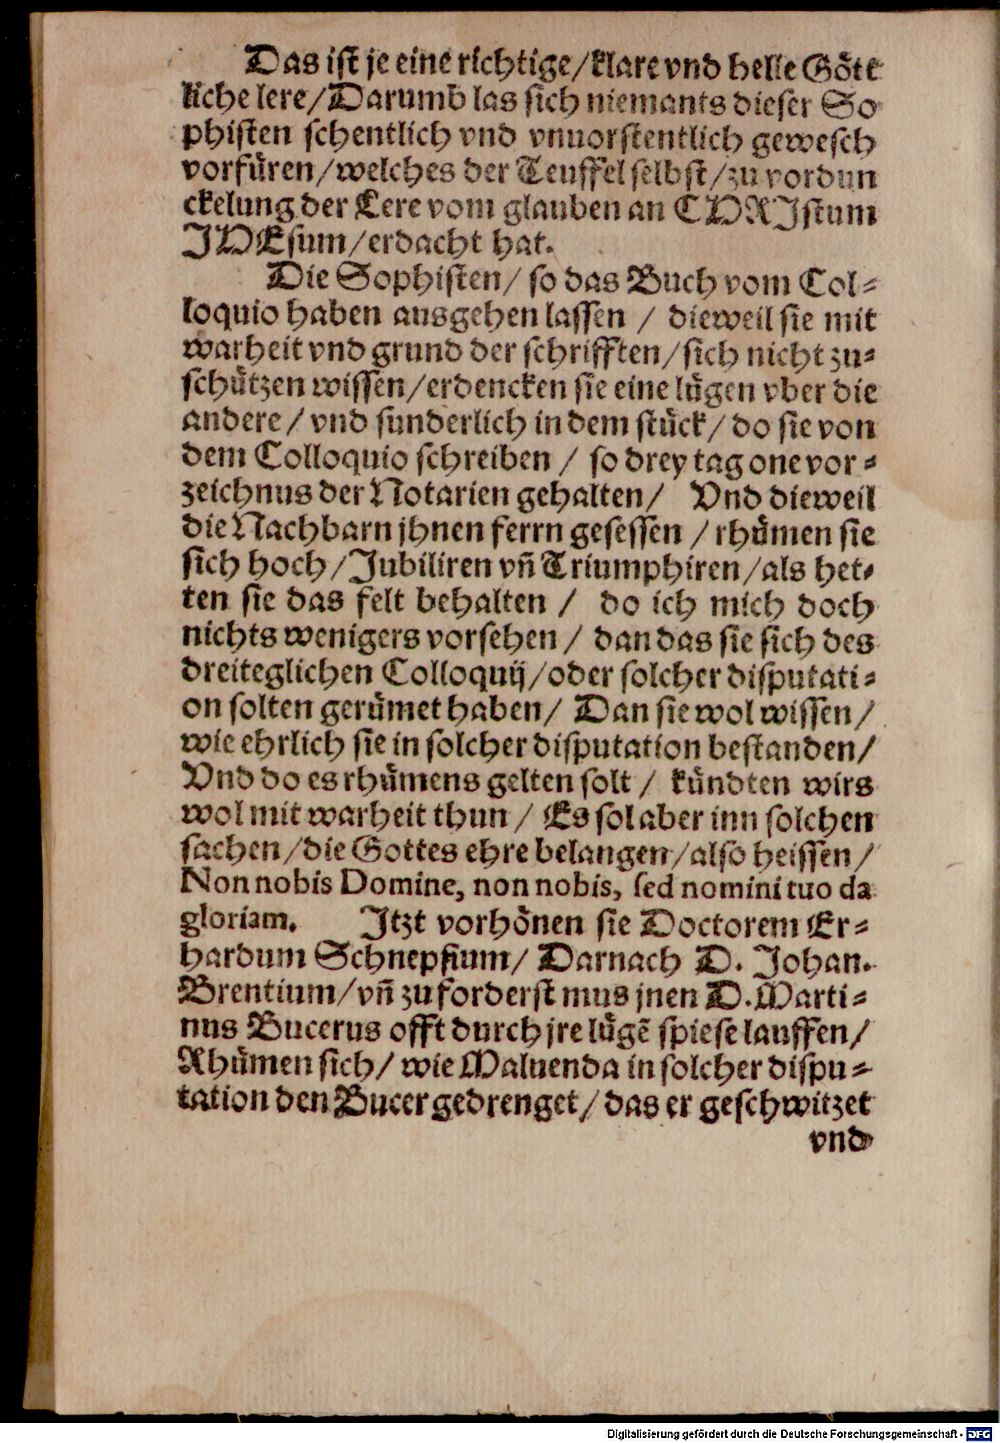 Das ist je eine richtige/klare vnd helle Gött
liche lere/Darumb las sich niemants dieser So
phisten schentlich vnd vnuorstentlich gewesch
vorfüren/welches der Teuffel selbst/zu vordun
ckelung der Lere vom glauben an CHRJstum
JHEsum/erdacht hat.
Die Sophisten/ so das Buch vom Col-
loquio haben ausgehen lassen / dieweil sie mit
warheit vnd grund der schrifften/sich nicht zu-
schützen wissen/erdencken sie eine lügen vber die
andere/ vnd sunderlich in dem stück/ do sie von
dem Colloquio schreiben / so drey tag one vor-
zeichnus der Notarien gehalten/ Vnd dieweil
die Nachbarn jhnen ferrn gesessen /rhümen sie
sich hoch/Jubiliren vñ Triumphiren/als het-
ten sie das felt behalten / do ich mich doch
nichts wenigers vorsehen/ dan das sie sich des
dreiteglichen Colloquij/oder solcher disputati-
on solten gerümet haben/ Dan sie wol wissen/
wie ehrlich sie in solcher disputation bestanden/
Vnd do es rhümens gelten solt / kündten wirs
wol mit warheit thun / Es sol aber inn solchen
sachen/die Gottes ehre belangen/also heissen/
Non nobis Domine, non nobis, sed nomini tuo da
gloriam. Jtzt vorhönen sie Doctorem Er-
hardum Schnepfium/ Darnach D. Johan.
Brentium/vñ zu forderst mus jnen D.Marti-
nus Bucerus offt durch jre lügẽ spiese lauffen/
Rhümen sich/ wie Maluenda in solcher dispu-
tation den Bucer gedrenget/ das er geschwitzet
vnd
Digitalisierung gefördert durch die Deutsche Forschungsgemeinschaft - DFG